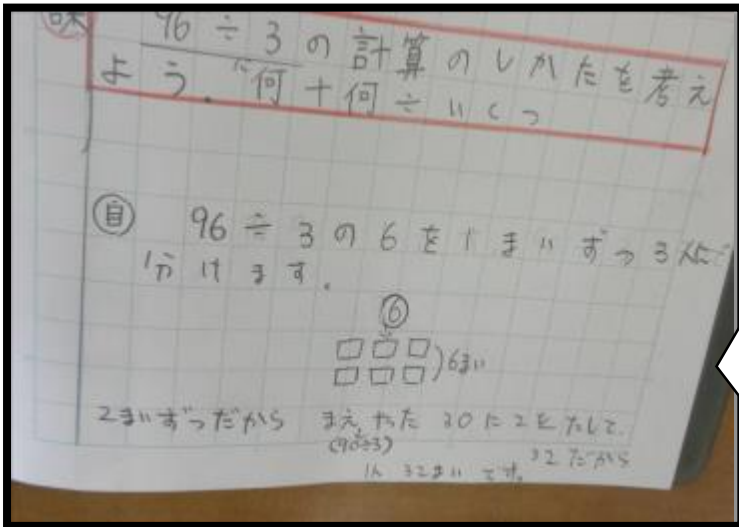 味
96 ÷ 3 の計算のしかたを考え
よう. 何十何÷いくつ
自 96 ÷ 3 の 6 を 1 まいずつ 3 人に
分けます.
⑥
6まい
2まいずつだから まえやった 30 に 2 をたして
(90÷3)
32 だから
1人 32まい です。